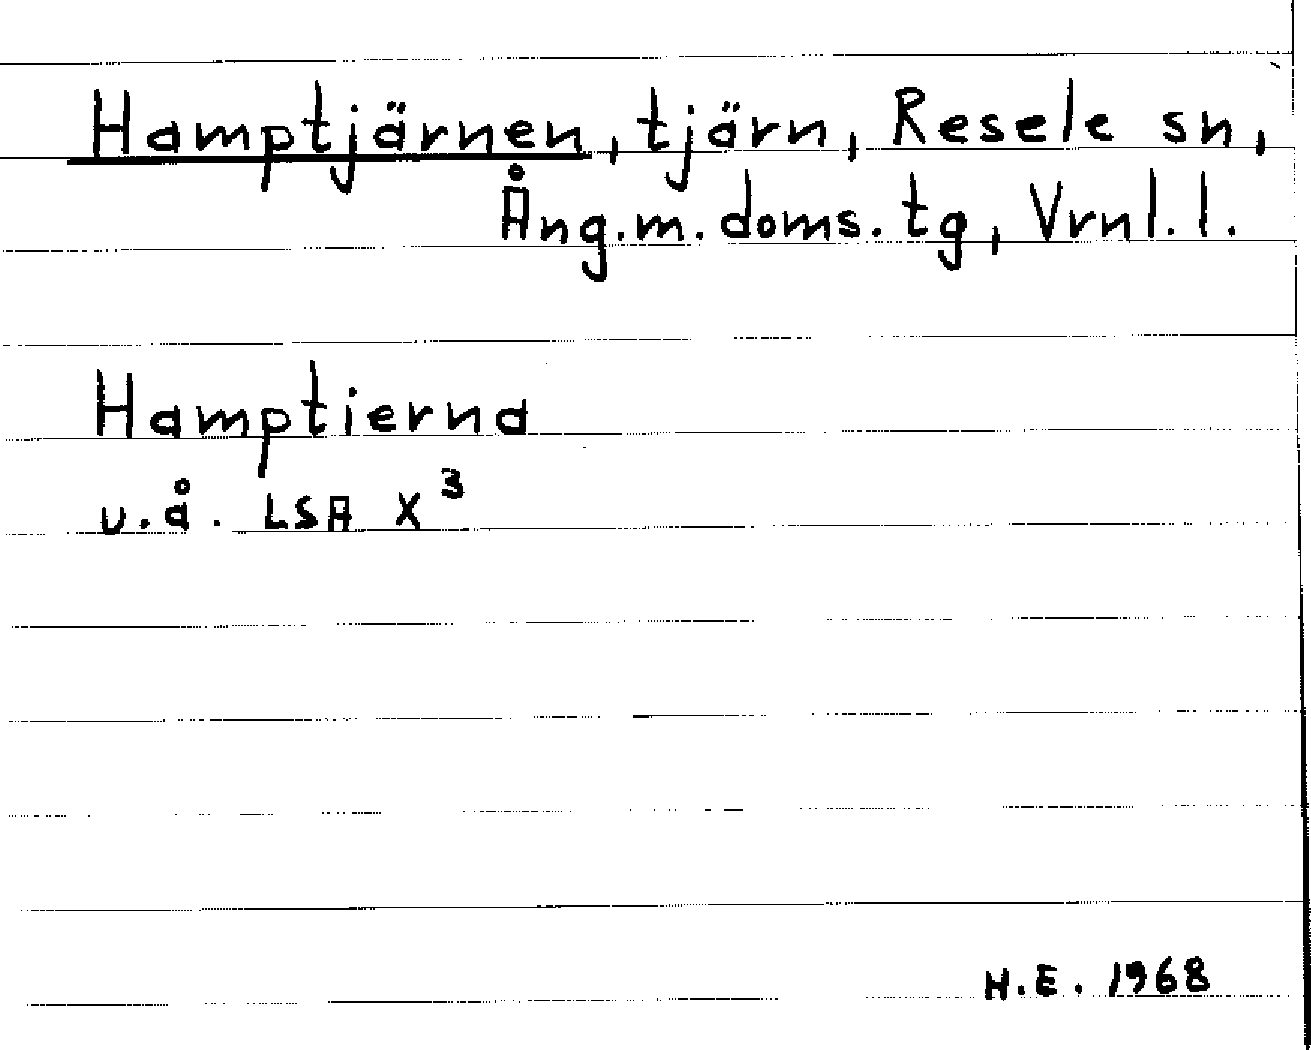 Hamptjärnen, tjärn, Resele sn,
Ång.m.doms.tg, Vrnl.l.
Hamptierna
u.å. LSA X³
H.E. 1968